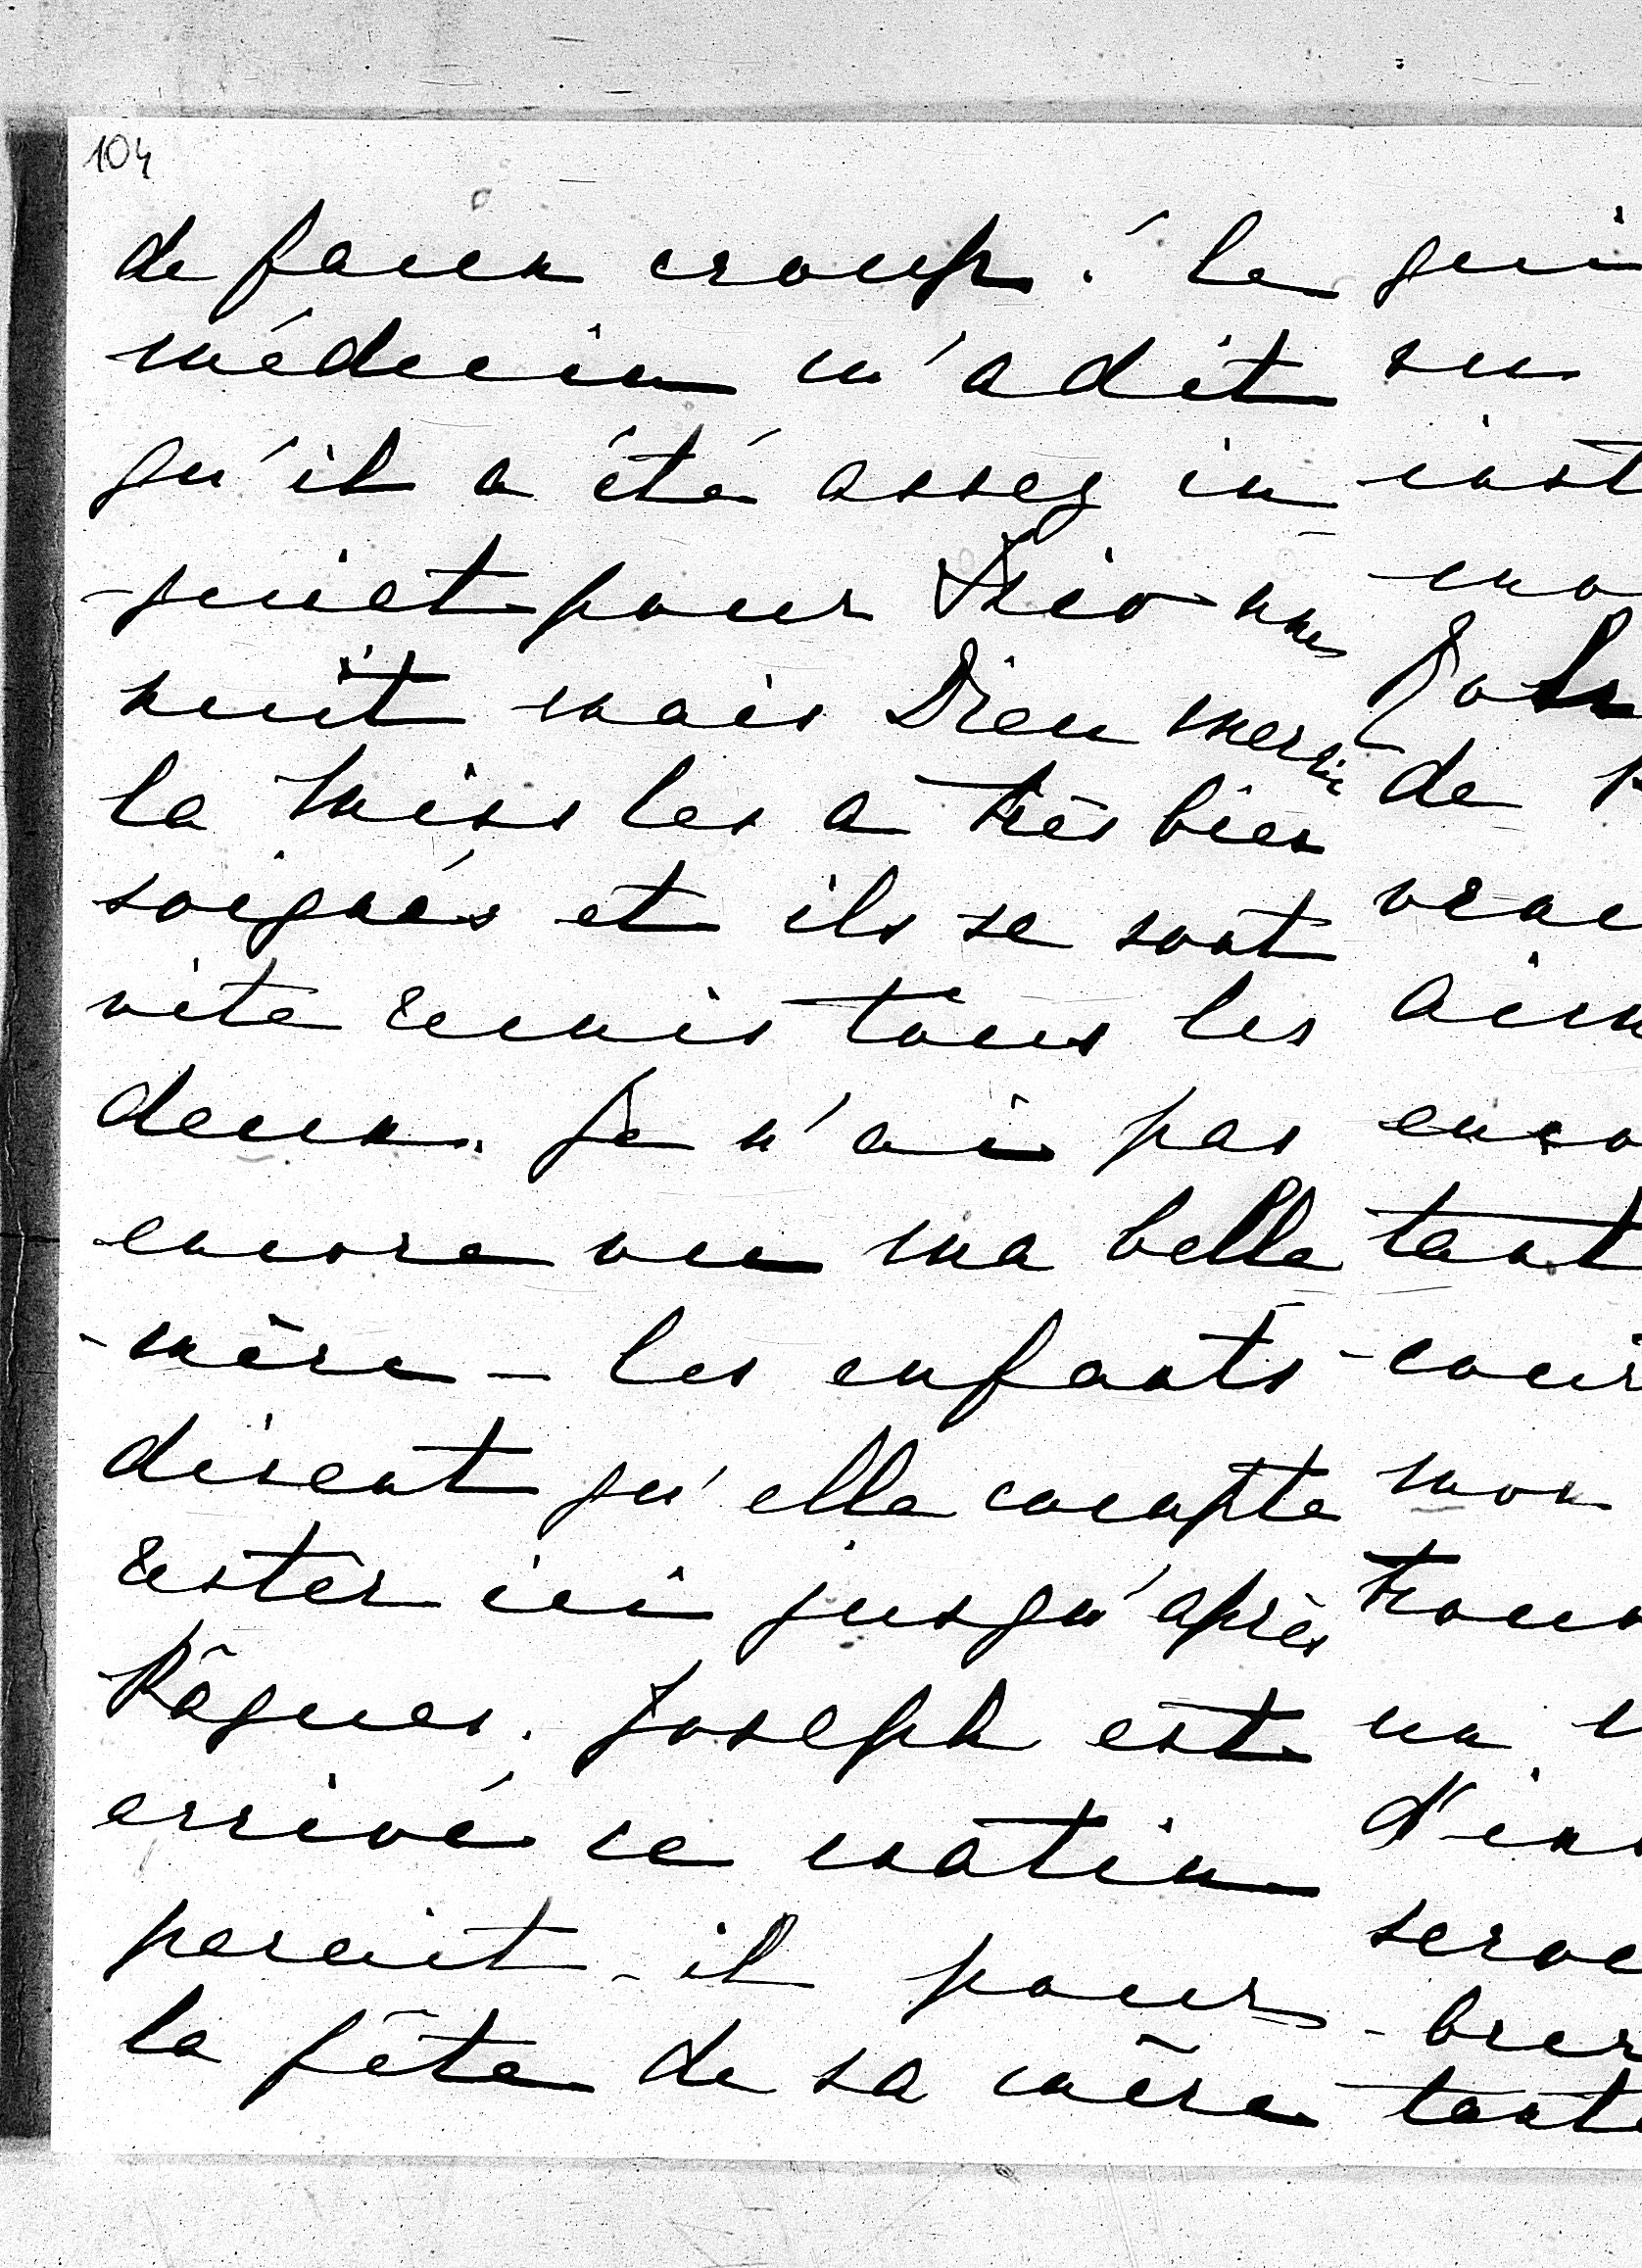 104
de faux croup. Le
médecin m'a dit
qu'il a été assez in
-quiet pour une
nuit mais Dieu merci
la Miss les a très bien
soignés et ils se sont
vite remis tous les
deux. Je n'ai pas
encore vu ma belle
-mère - les enfants
disent qu'elle compte
rester ici jusqu'après
Pâques. Joseph est
arrivé ce matin
parait-il pour
la fête de sa mère
qui
su
inst
mo
de
vrai
aim
enco
tant
-cour
mon
trouv
un
d'in
serve
-brer
tante